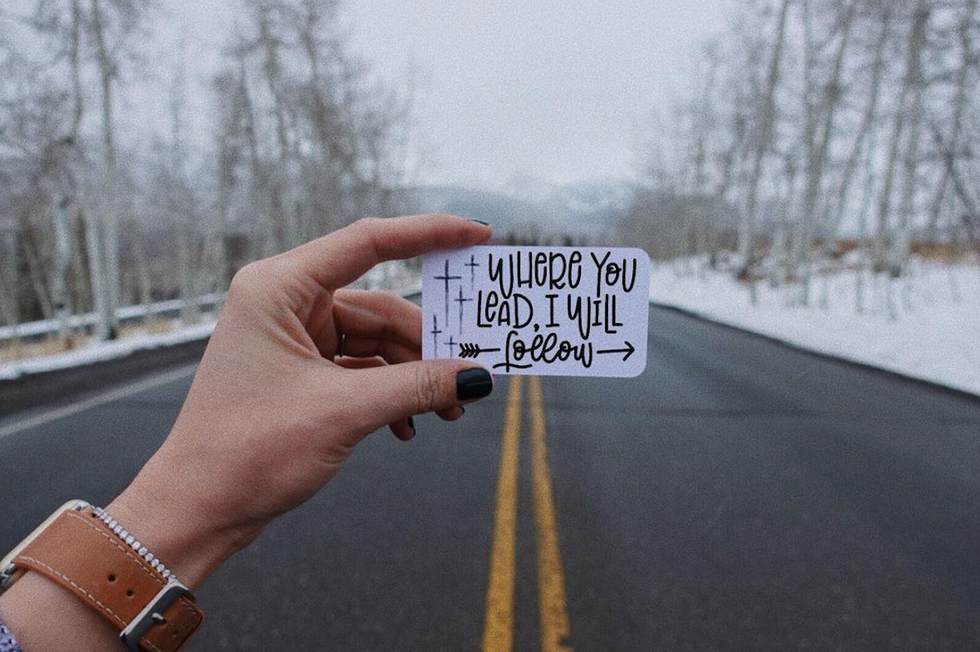 WHERE YOU
LEAD, I WILL
follow